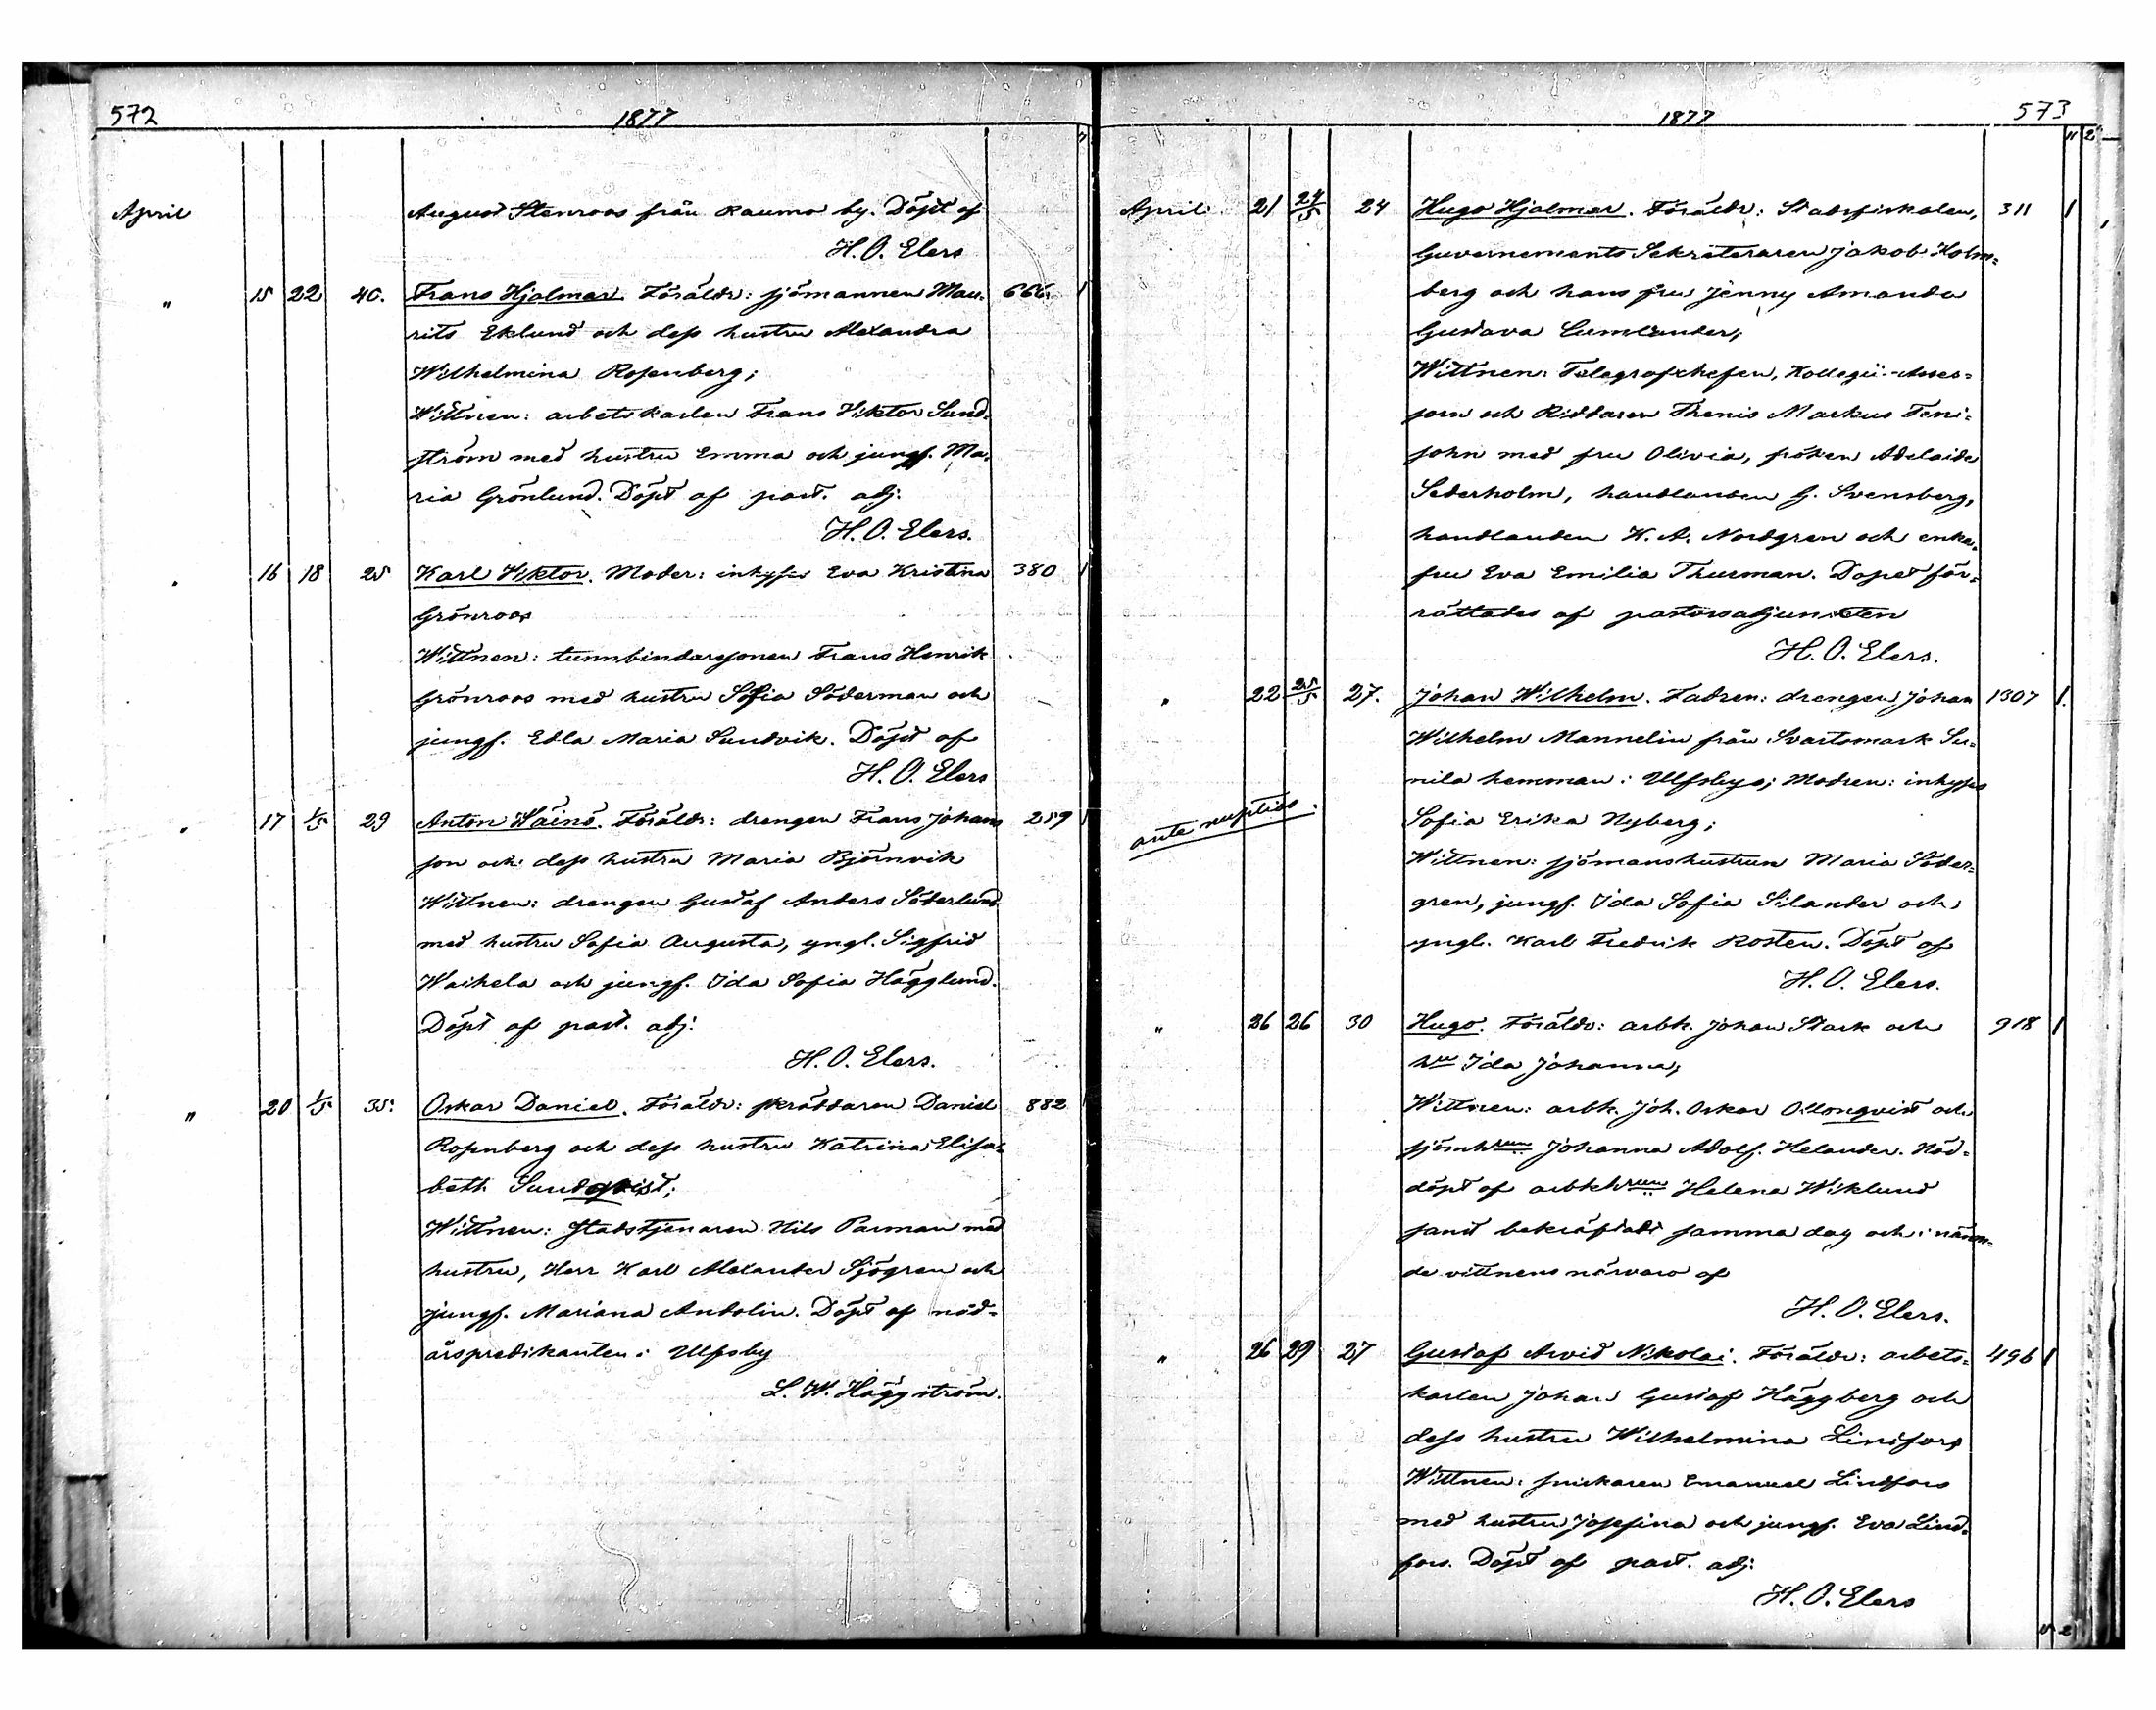 572 1877
April August Stenroos från Raumo by. Döpt af
H. O. Elers
" 15 22 40. Frans Hjalmar. Föräldr: sjömannen Mau- 666. 1
rits Eklund och dess hustru Alexandra
Wilhelmina Rosenberg;
Wittnen: arbetskarlen Frans Viktor Sund-
ström med hustru Emma och jungf. Ma-
ria Grönlund. Döpt af past. adj.
H. O. Elers.
" 16 18 25 Karl Viktor. Moder: inhyses Eva Kristina 380 1
Grönroos
Wittnen: tunnbindaresonen Frans Henrik
Grönroos med hustru Sofia Söderman och
jungf. Edla Maria Sundvik. Döpt af
H. O. Elers
" 17 1/5 29 Anton Wäinö. Föräldr: drengen Frans Johans 259 1
son och dess hustru Maria Björnvik
Wittnen: drengen Gustaf Anders Söderlund
med hustru Sofia Augusta, yngl. Sigfrid
Waihela och jungf. Ida Sofia Hägglund.
Döpt af past. adj:
H. O. Elers.
" 20 1/5 35. Oskar Daniel. Föräldr: skräddaren Daniel 882
Rosenberg och dess hustru Katrina Elisa-
beth Sundqvist;
Wittnen: Stadstjenaren Nils Parman med
hustru, Herr Karl Alexander Sjögren och
jungf. Mariana Andolin. Döpt af nöd-
årspredikanten i Ulfsby
L. W. Häggström.
1877 573
April 21 24/5 24 Hugo Hjalmar. Föräldr: Stadsfiskalen, 311 1
Guvernements Sekreteraren Jakob Holm-
berg och hans fru Jenny Amanda
Gustava Cumlander;
Wittnen: Telegrafchefen, Kollegii-Asses-
sorn och Riddaren Thenis Markus Teni-
john med fru Olivia, fröken Adelaide
Sederholm, handlanden G. Svensberg,
handlanden K. A. Nordgren och enke-
fru Eva Emilia Thurman. Dopet för-
rättades af pastorsadjunkten
H. O. Elers.
" 22 25/5 27. Johan Wilhelm. Fadren: drengen Johan 1307 1.
Wilhelm Mannelin från Svartsmark Su-
nila hemman i Ulfsby; Modren: inhyses
ante nuptias. Sofia Erika Nyberg;
Wittnen: sjömanshustrun Maria Söder-
gren, jungf. Ida Sofia Silander och
yngl. Karl Fredrik Rosten. Döpt af
H. O. Elers.
" 26 26 30 Hugo. Föräldr: arbk. Johan Stark och 918 1
hu Ida Johanna;
Wittnen: arbk. Joh. Oskar Ollonqvist och
sjömhrun Johanna Adolf. Helander. Nöd-
döpt af arbkhrun Helena Wiklund
samt bekräftadt samma dag och i nämn-
de vittnens närvaro af
H. O. Elers.
" 26 29 27 Gustaf Arvid Nikolai. Föräldr: arbets- 496 1
karlen Johan Gustaf Häggberg och
dess hustru Wilhelmina Lindfors
Wittnen: snickaren Emanuel Lindfors
med hustru Josefina och jungf. Eva Lind-
fors. Döpt af past. adj:
H. O. Elers